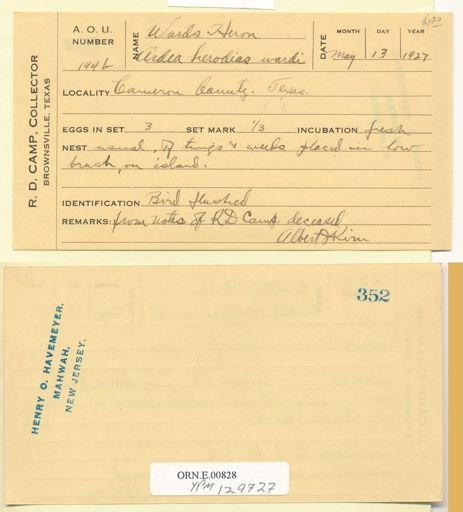 $1.50
R. D. CAMP, COLLECTOR
BROWNSVILLE, TEXAS
A. O. U.
NUMBER
194b
NAME
Wards Heron
Ardea herodias wardi
DATE
MONTH DAY YEAR
May 13 1927
LOCALITY Cameron County. Texas.
EGGS IN SET 3 SET MARK 1/3 INCUBATION fresh
NEST usual, of twigs & weeds placed in low
brush, on island.
IDENTIFICATION Bird flushed
REMARKS: from notes of RD Camp deceased
Albert J Kirn
HENRY O. HAVEMEYER.
MAHWAH.
NEW JERSEY.
352
ORN.E.00828
YPM 129727